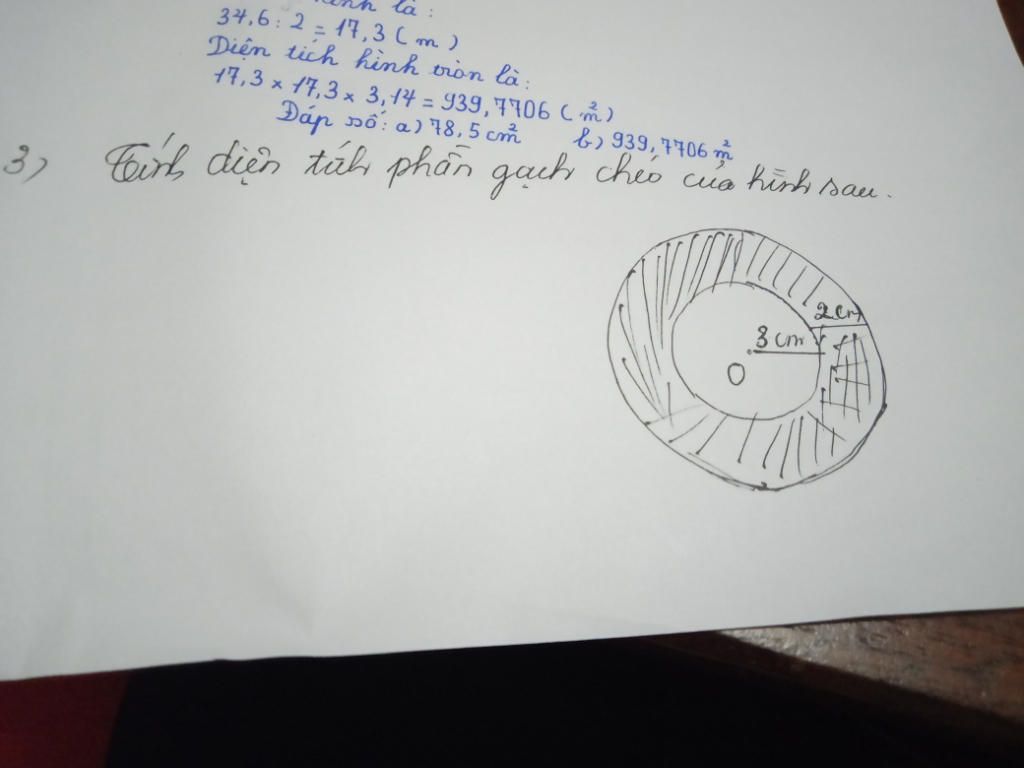 hình là:
34,6 : 2 = 17,3 ( m )
Diện tích hình tròn là:
17,3 x 17,3 x 3,14 = 939,7706 ( m² )
Đáp số: a) 78,5 cm² b) 939,7706 m²
3) Tính diện tích phần gạch chéo của hình sau.
2cm
3 cm
O